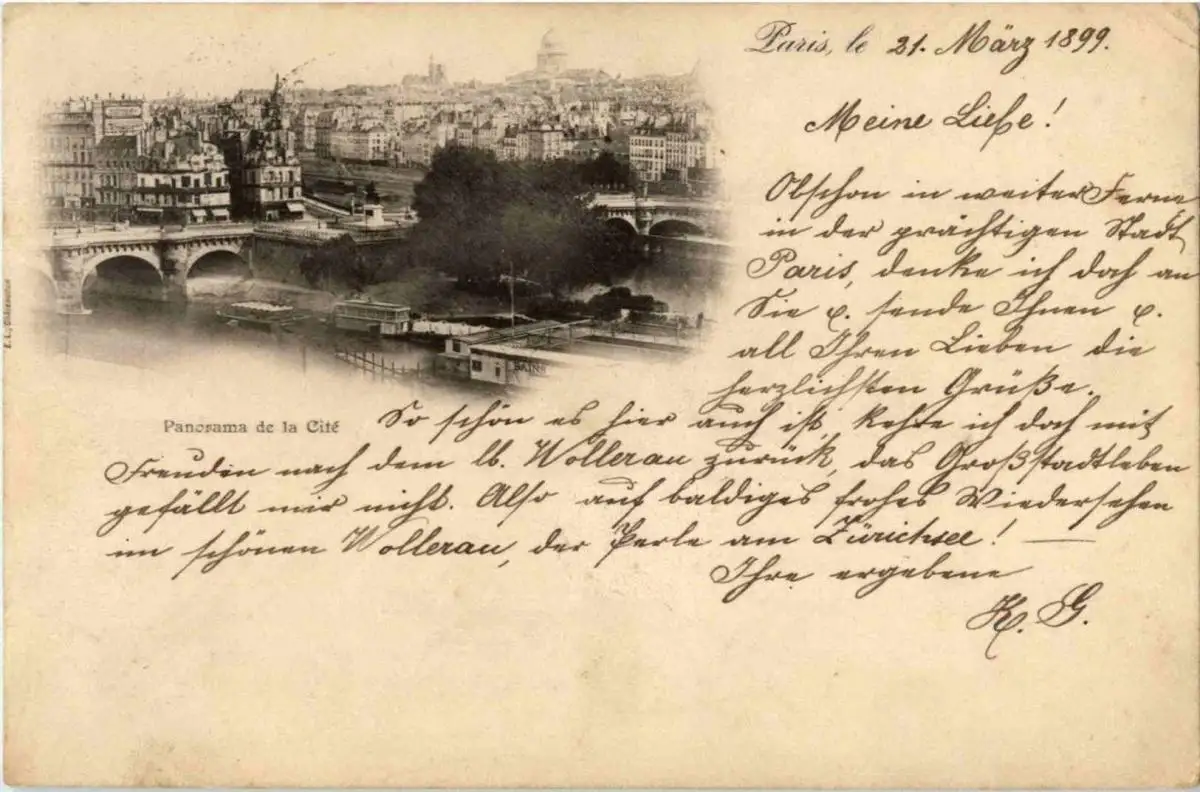 Paris, le 21. März 1899.
Meine Liebe!
Obschon in weiter Ferne
in der prächtigen Stadt
Paris, denke ich doch an
Sie u. sende Ihnen u.
all Ihren Lieben die
herzlichsten Grüße.
Panorama de la Cité
So schön es hier auch ist, kehre ich doch mit
Freuden nach dem lb. Wollerau zurück, das Großstadtleben
gefällt mir nicht. Also auf baldiges frohes Wiedersehen
im schönen Wollerau, der Perle am Zürichsee! —
Ihre ergebene
K. G.
BAINS